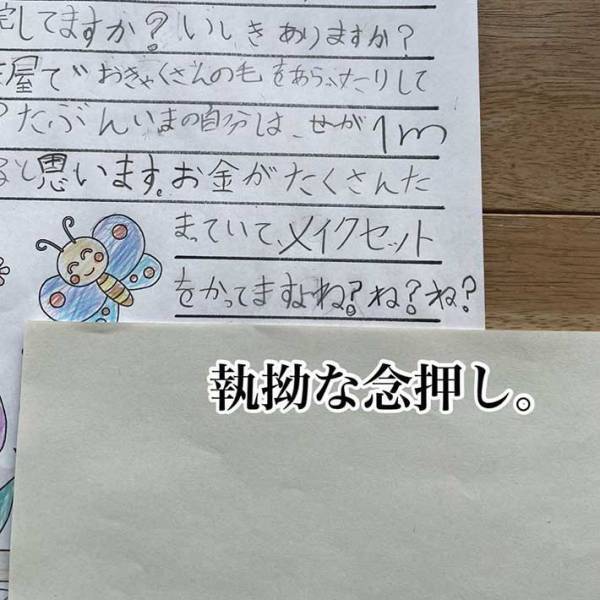 してますか?いしきありますか?
屋でおきゃくさんの毛をあらったりして
たぶんいまの自分は、せーが1m
と思います。お金がたくさんた
まっていて、メイクセット
をかってますよね?ね?ね?
執拗な念押し。